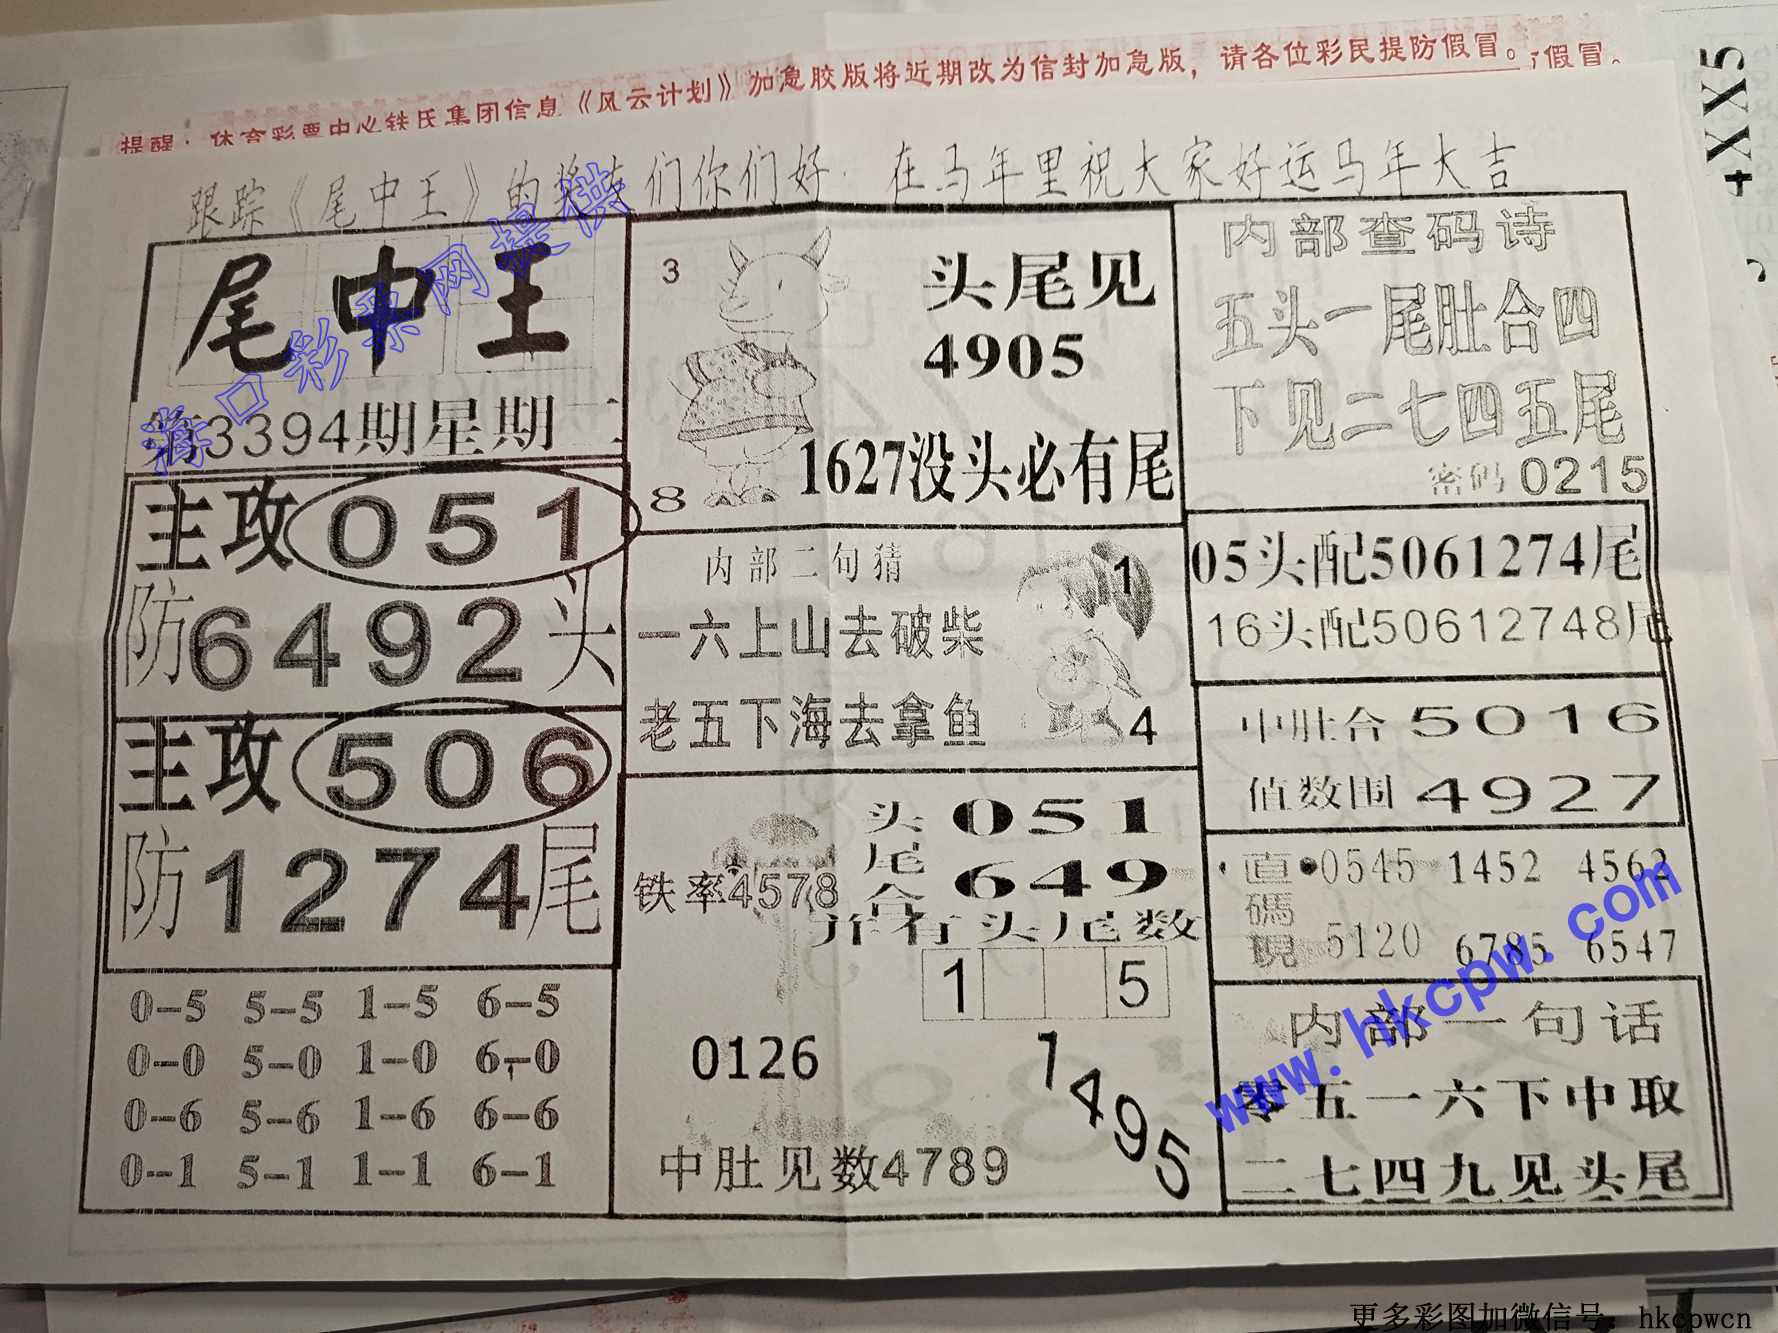 加急胶版将近期改为信封加急版，请各位彩民提防假冒。
假冒。
提醒：体育彩票中心铁氏集团信息《风云计划》
+XX5
跟踪《尾中王》的彩友们你们好：在马年里祝大家好运马年大吉
尾中王
第3394期星期二
主攻051
防6492头
主攻506
防1274尾
0-5 5-5 1-5 6-5
0-0 5-0 1-0 6-0
0-6 5-6 1-6 6-6
0-1 5-1 1-1 6-1
3
头尾见
4905
1627没头必有尾
8
内部二句猜
1
一六上山去破柴
老五下海去拿鱼
4
头尾合
051
649
铁率4578
并有头尾数
1 5
0126
1495
中肚见数4789
内部查码诗
五头一尾肚合四
下见二七四五尾
密码0215
05头配5061274尾
16头配50612748尾
中肚合5016
值数围4927
直碼現
0545 1452 4562
5120 6785 6547
内部一句话
零五一六下中取
二七四九见头尾
海口彩票网提供
www.hkcpw.com
更多彩图加微信号：hkcpwcn